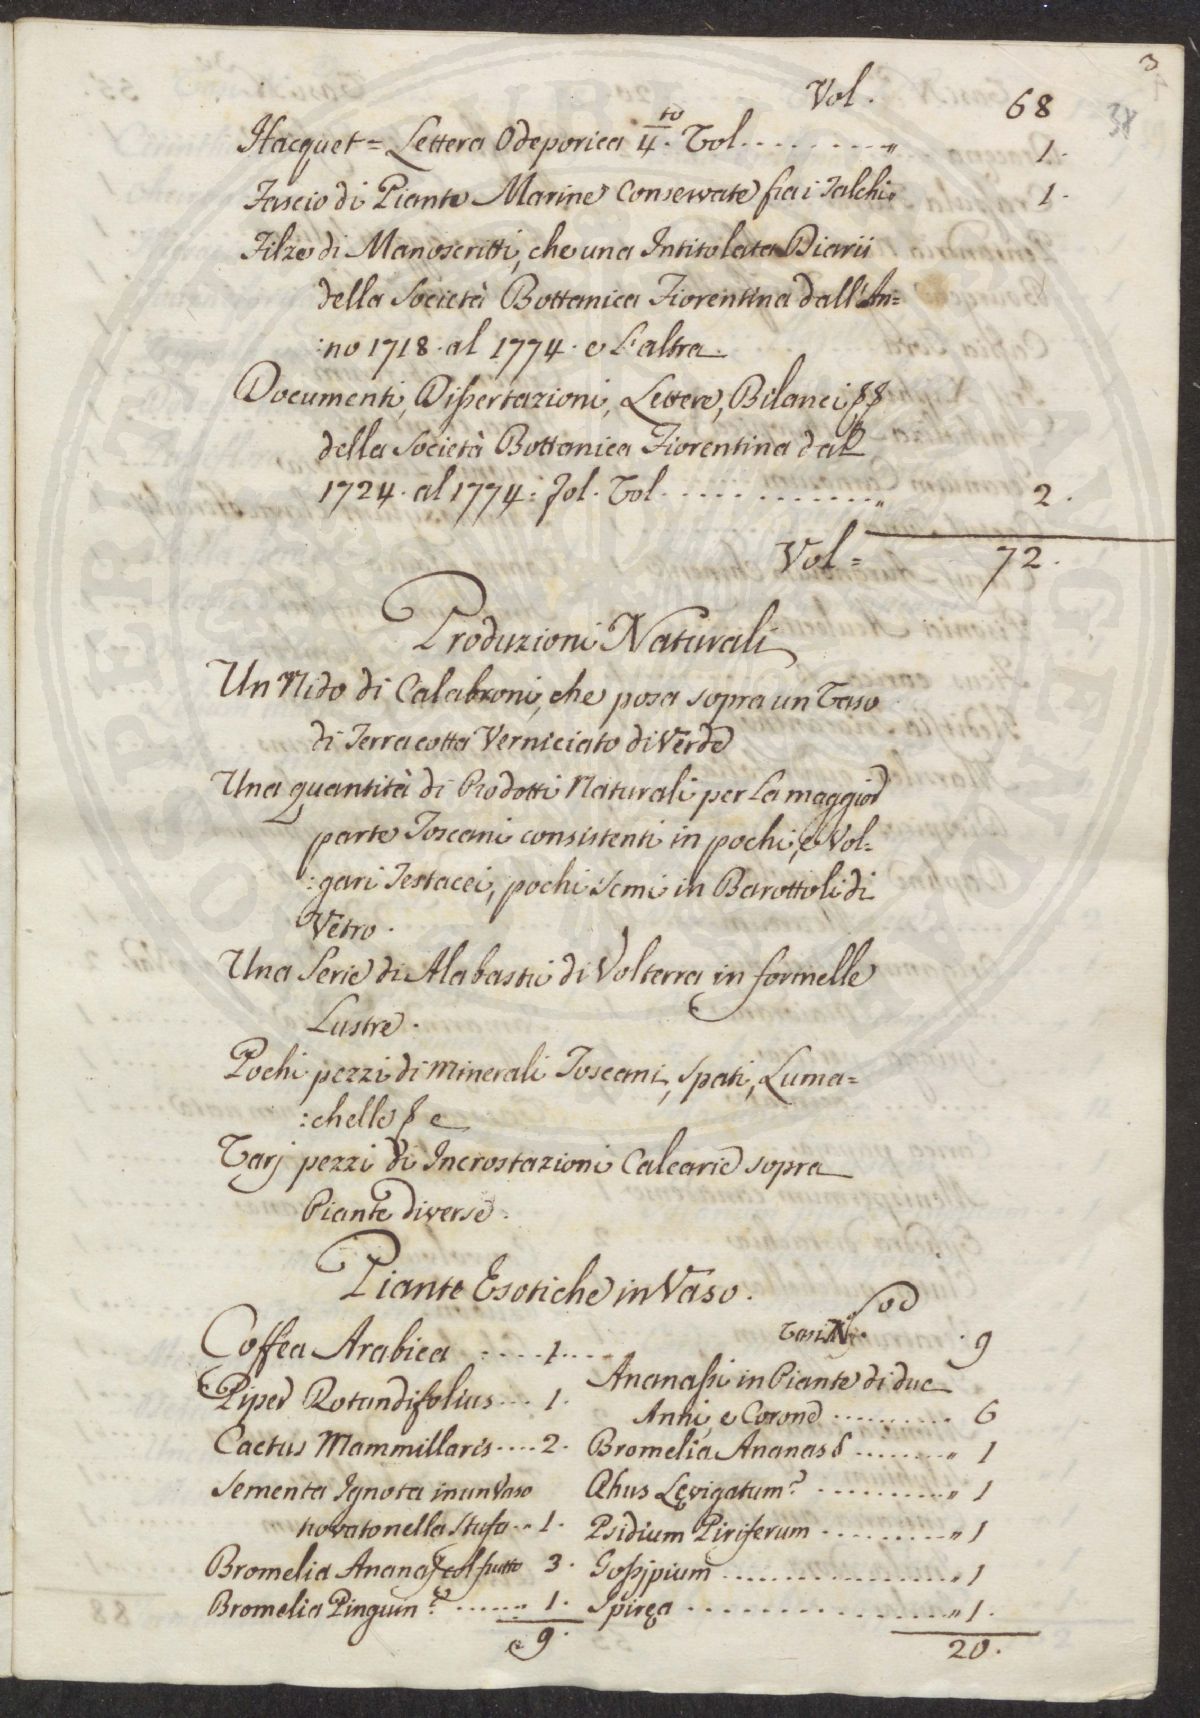 3
38
Vol. 68
Hacquet = Lettera Odeporica 4.to Vol. ........ " 1.
Fascio di Piante Marine conservate fra i Talchi " 1.
Filze di Manoscritti, che una Intitolata Diarii
della Società Bottanica Fiorentina dall'An=
:no 1718. al 1774. e L'altra
Documenti, Dissertazioni, Lettere, Bilanci, &&
della Società Bottanica Fiorentina dal
1724. al 1774: Fol. Vol. ............ " 2.
Vol = 72.
Produzioni Naturali
Un Nido di Calabroni, che posa sopra un Vaso
di Terra cotta Verniciato di Verde
Una quantità di Prodotti Naturali per La maggior
parte Toscani consistenti in pochi, e Vol=
:gari Testacei, pochi Semi in Barottoli di
Vetro.
Una Serie di Alabastri di Volterra in formelle
Lustre.
Pochi pezzi di Minerali Toscani, Spati, Luma=
:chelle &c
Varj pezzi di Incrostazioni Calcarie sopra
Piante diverse.
Piante Esotiche in Vaso.
Coffea Arabica ..... 1.
Piper Rotundifolius ... 1.
Cactus Mammillaris .... 2.
Sementa Ignota in un Vaso
trovato nella Stufa .. 1.
Bromelia Ananas col frutto 3.
Bromelia Pinguin? ...... " 1.
9.
Vasi N. 9
Ananassi in Piante di due
Anni, e Corone .......... 6
Bromelia Ananas ........ " 1
Rhus Lęvigatum? .......... " 1
Psidium Piriferum .......... " 1
Gossjpium .............. " 1
Spiręa ............... " 1.
20.